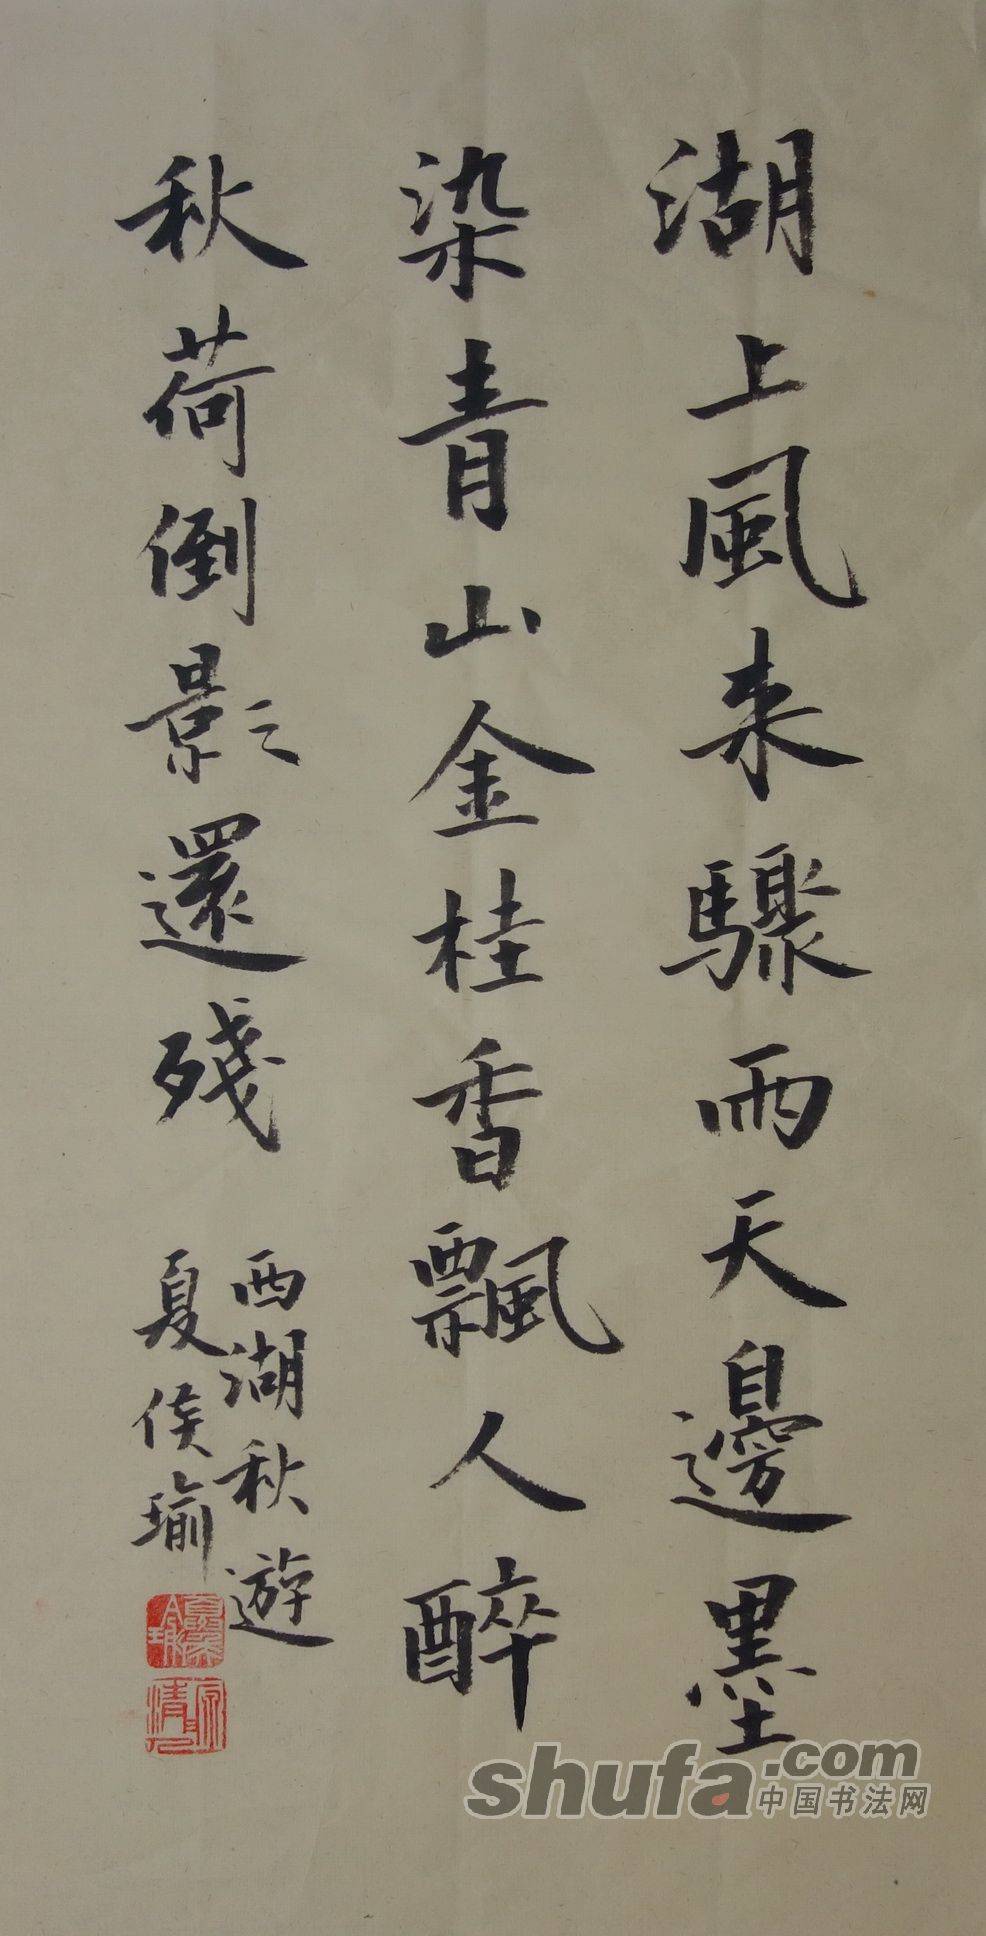 湖上風来驟雨天邊墨
染青山金桂香飄人醉
秋荷倒影還殘
西湖秋遊
夏侯瑜
shufa.com
中国书法网